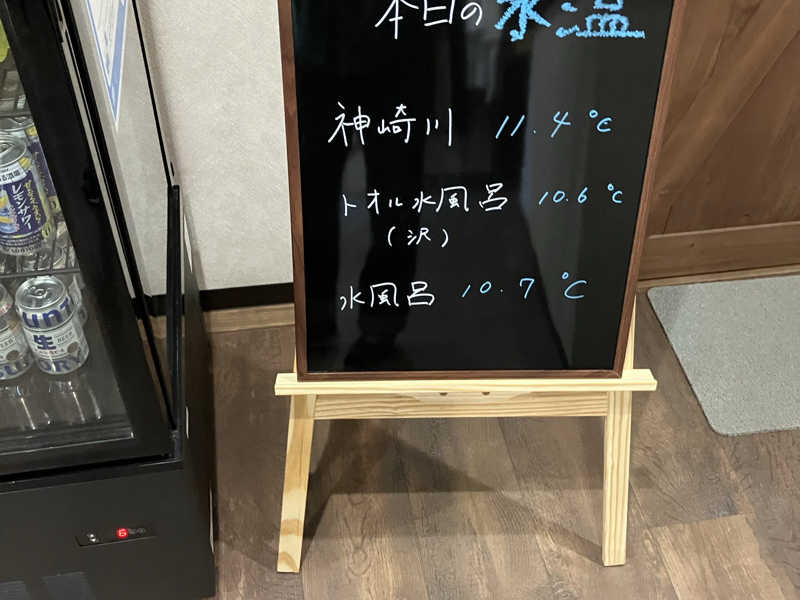 本日の水温
神崎川 11.4℃
トオル水風呂 10.6℃
(沢)
水風呂 10.7℃
レモンサワー
生
BEER
6